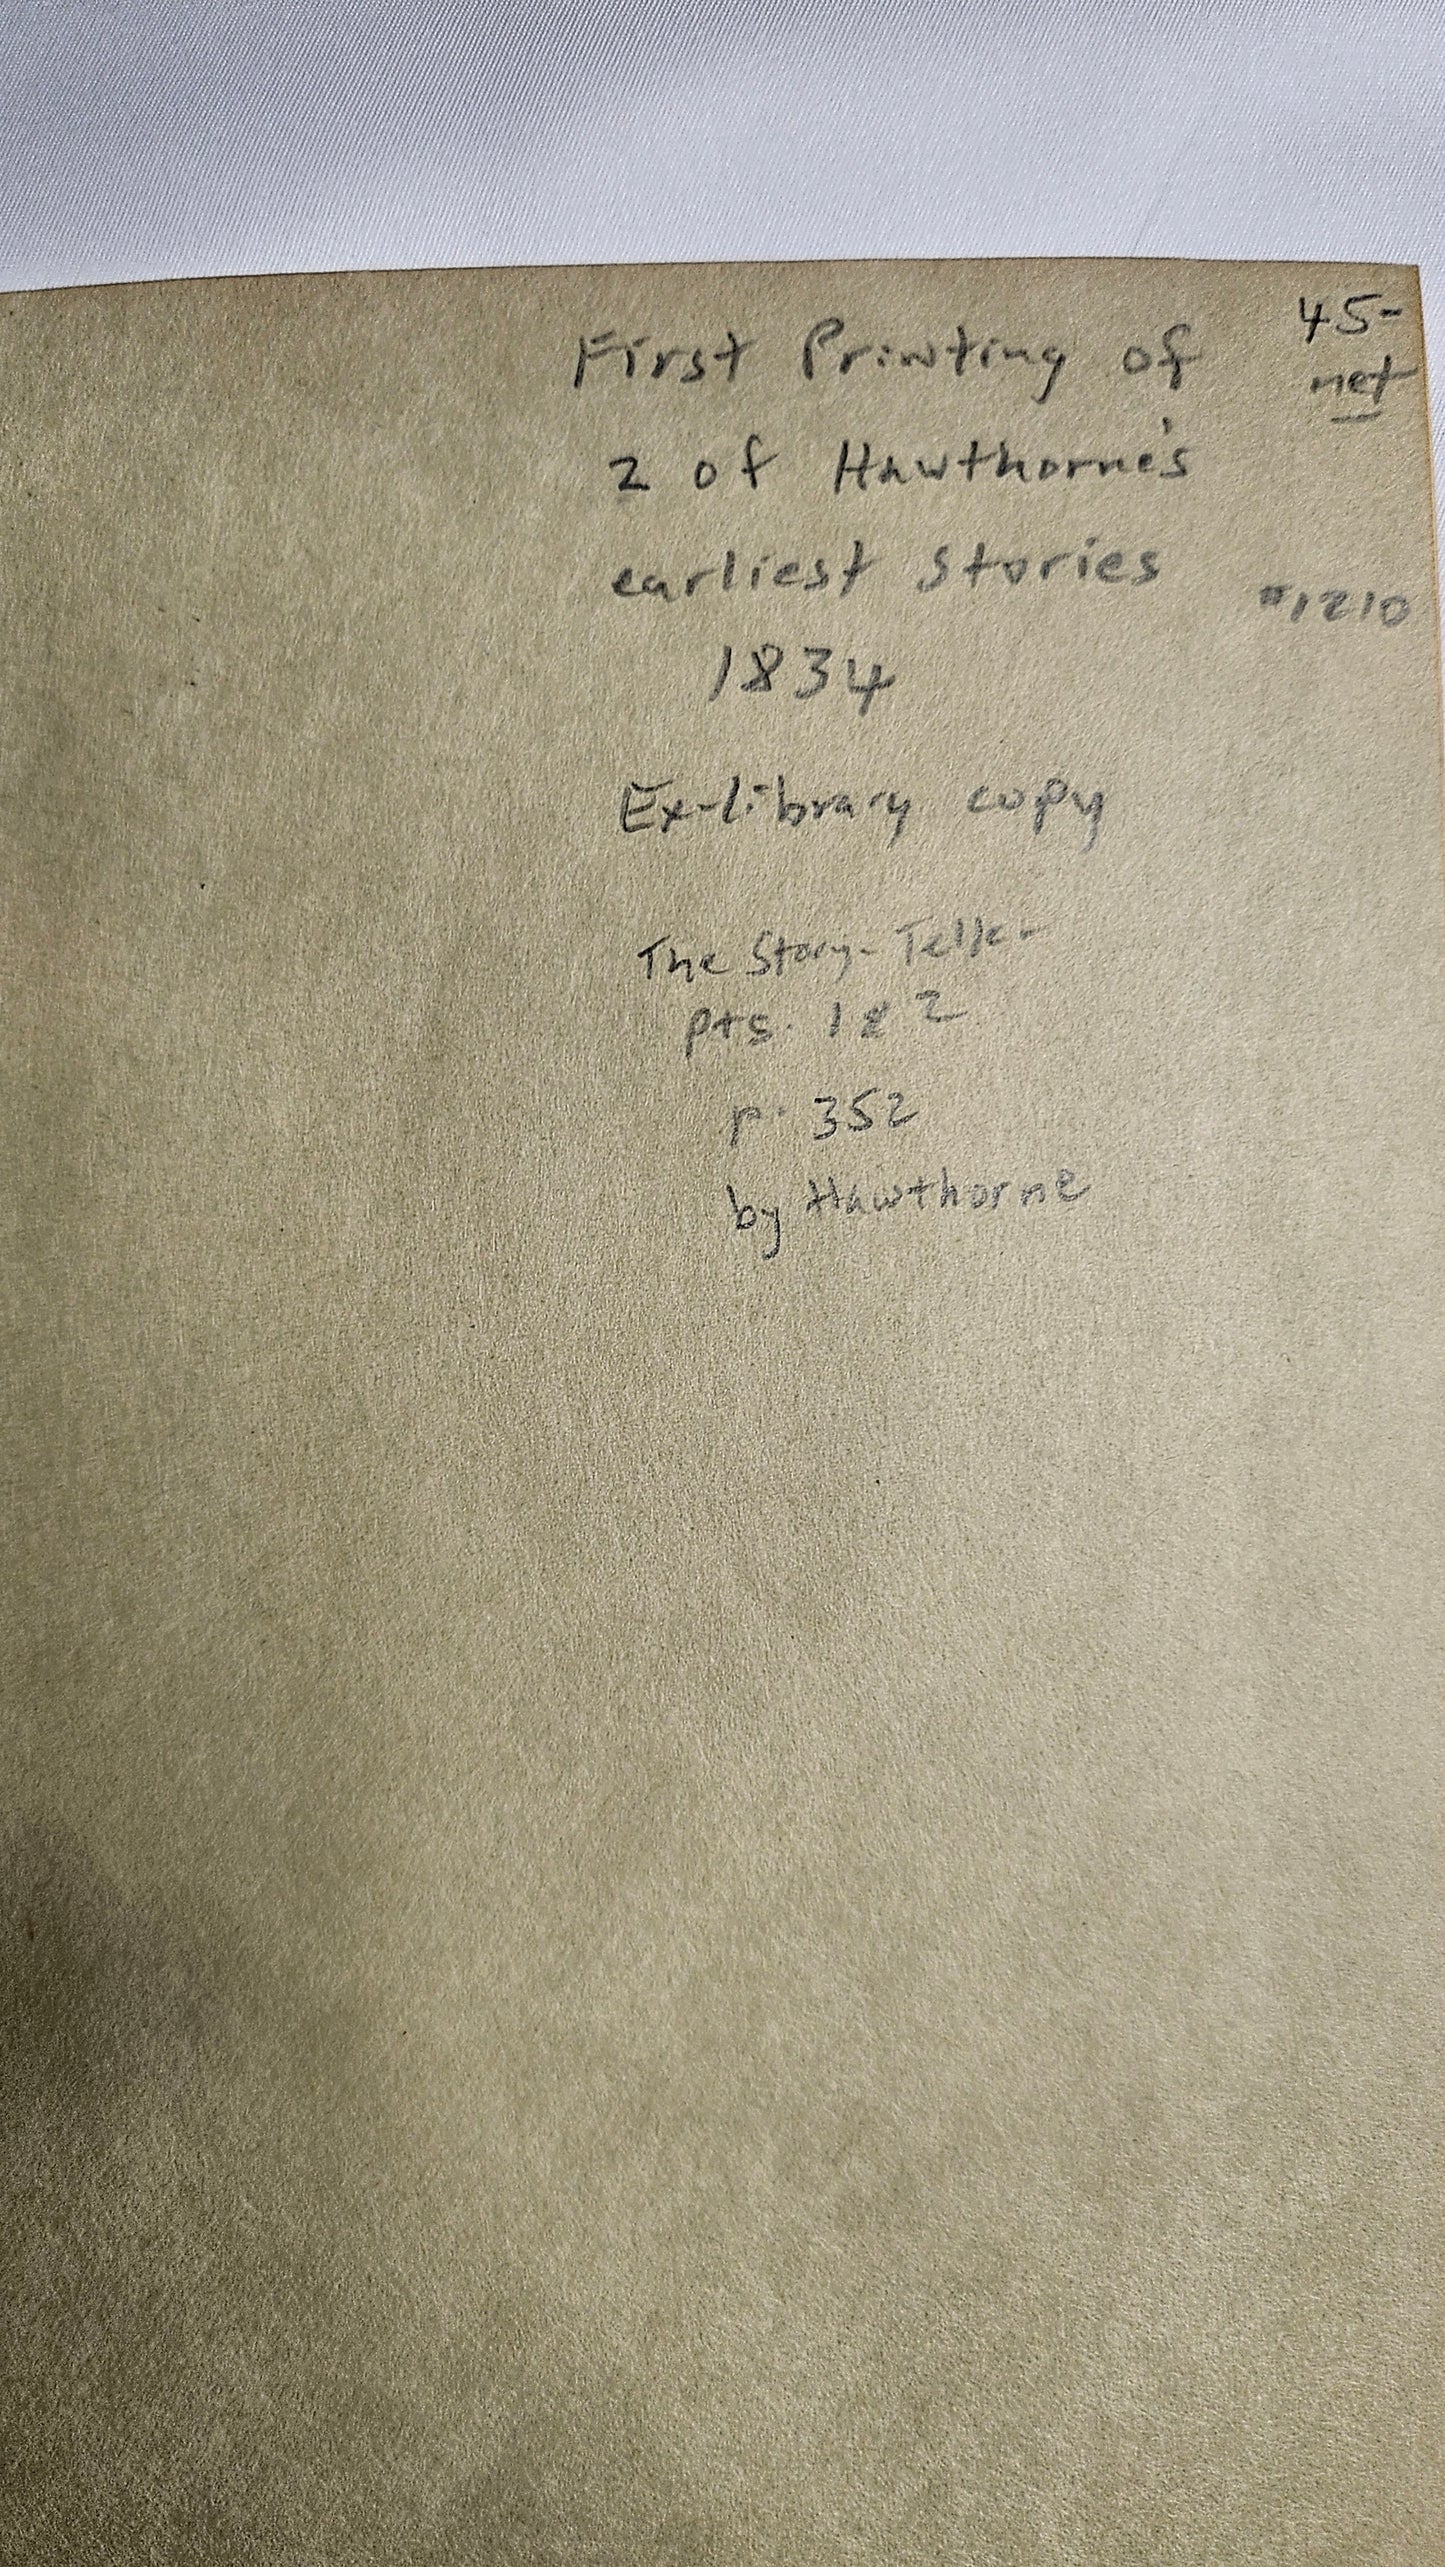 First Printing of
45-
net
2 of Hawthorne's
earliest stories
#1210
1834
Ex-library copy
The Story-Teller
pts. 1 & 2
p. 352
by Hawthorne